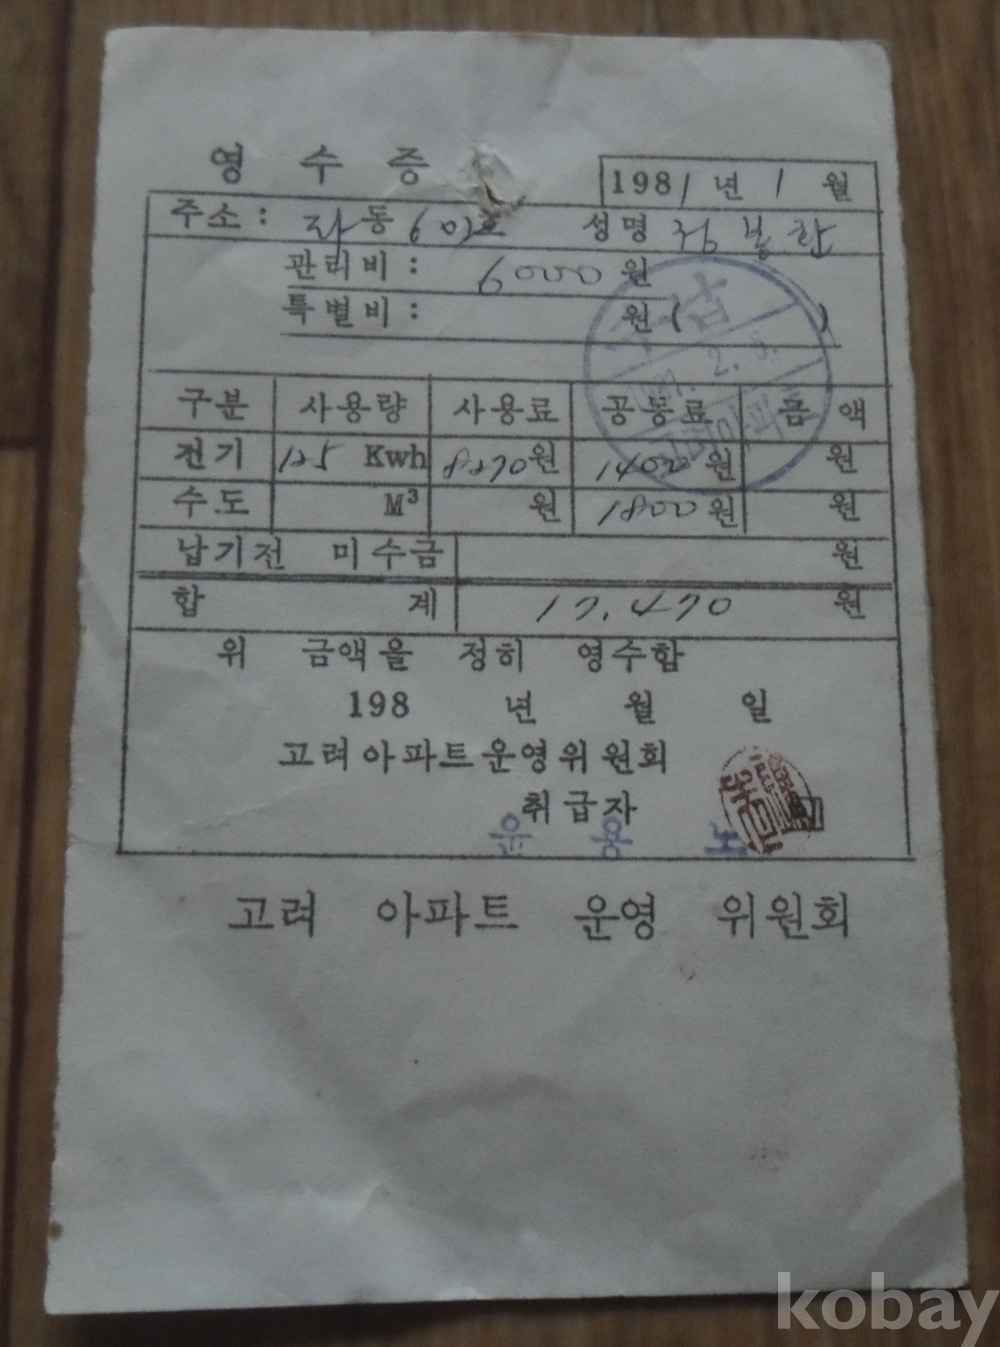 영 수 증
1981년 1월
주소: 라동 6 성명
관리비: 6000원
특별비: 원( )
구분 사용량 사용료 공동료 금액
전기 125 Kwh 8270원 1400원 원
수도 M³ 원 1800원 원
납기전 미수금 원
합 계 17.470 원
위 금액을 정히 영수함
198 년 월 일
고려아파트운영위원회
취급자
윤 용 노 인
고려 아파트 운영 위원회
수납
1981. 2. 5.
고려아파트
kobay